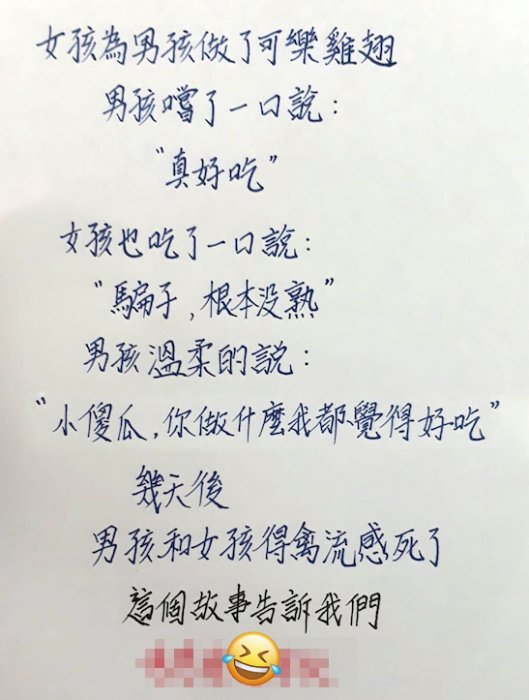 女孩為男孩做了可樂雞翅
男孩嚐了一口說：
“真好吃”
女孩也吃了一口說：
“騙子，根本没熟”
男孩溫柔的說：
“小傻瓜，你做什麼我都覺得好吃”
幾天後
男孩和女孩得禽流感死了
這個故事告訴我們